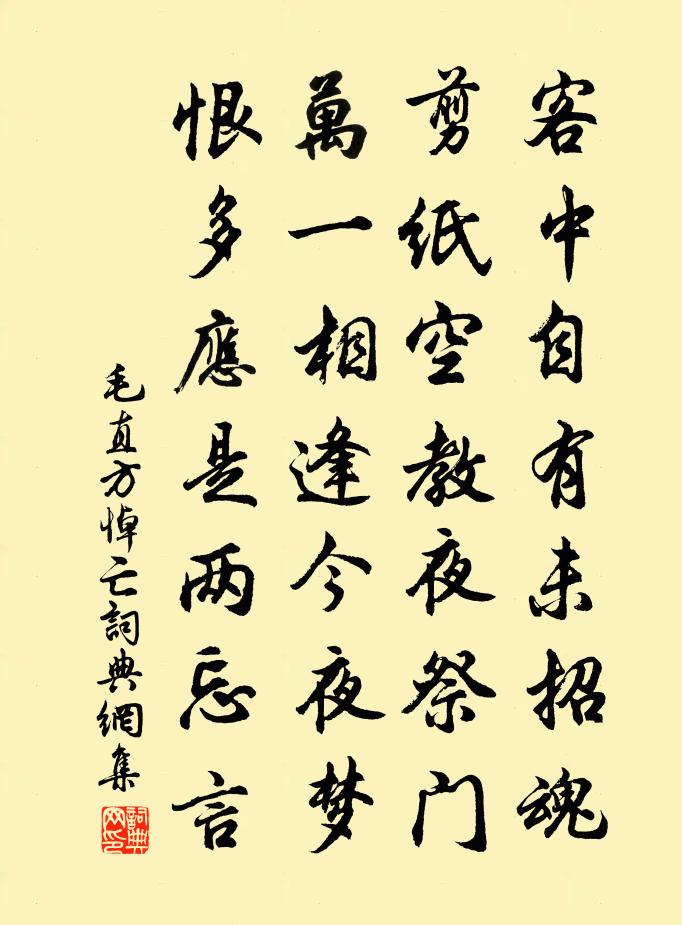 客中自有未招魂
剪紙空教夜祭门
萬一相逢今夜梦
恨多應是两忘言
毛直方悼亡詞典網集
詞典网印